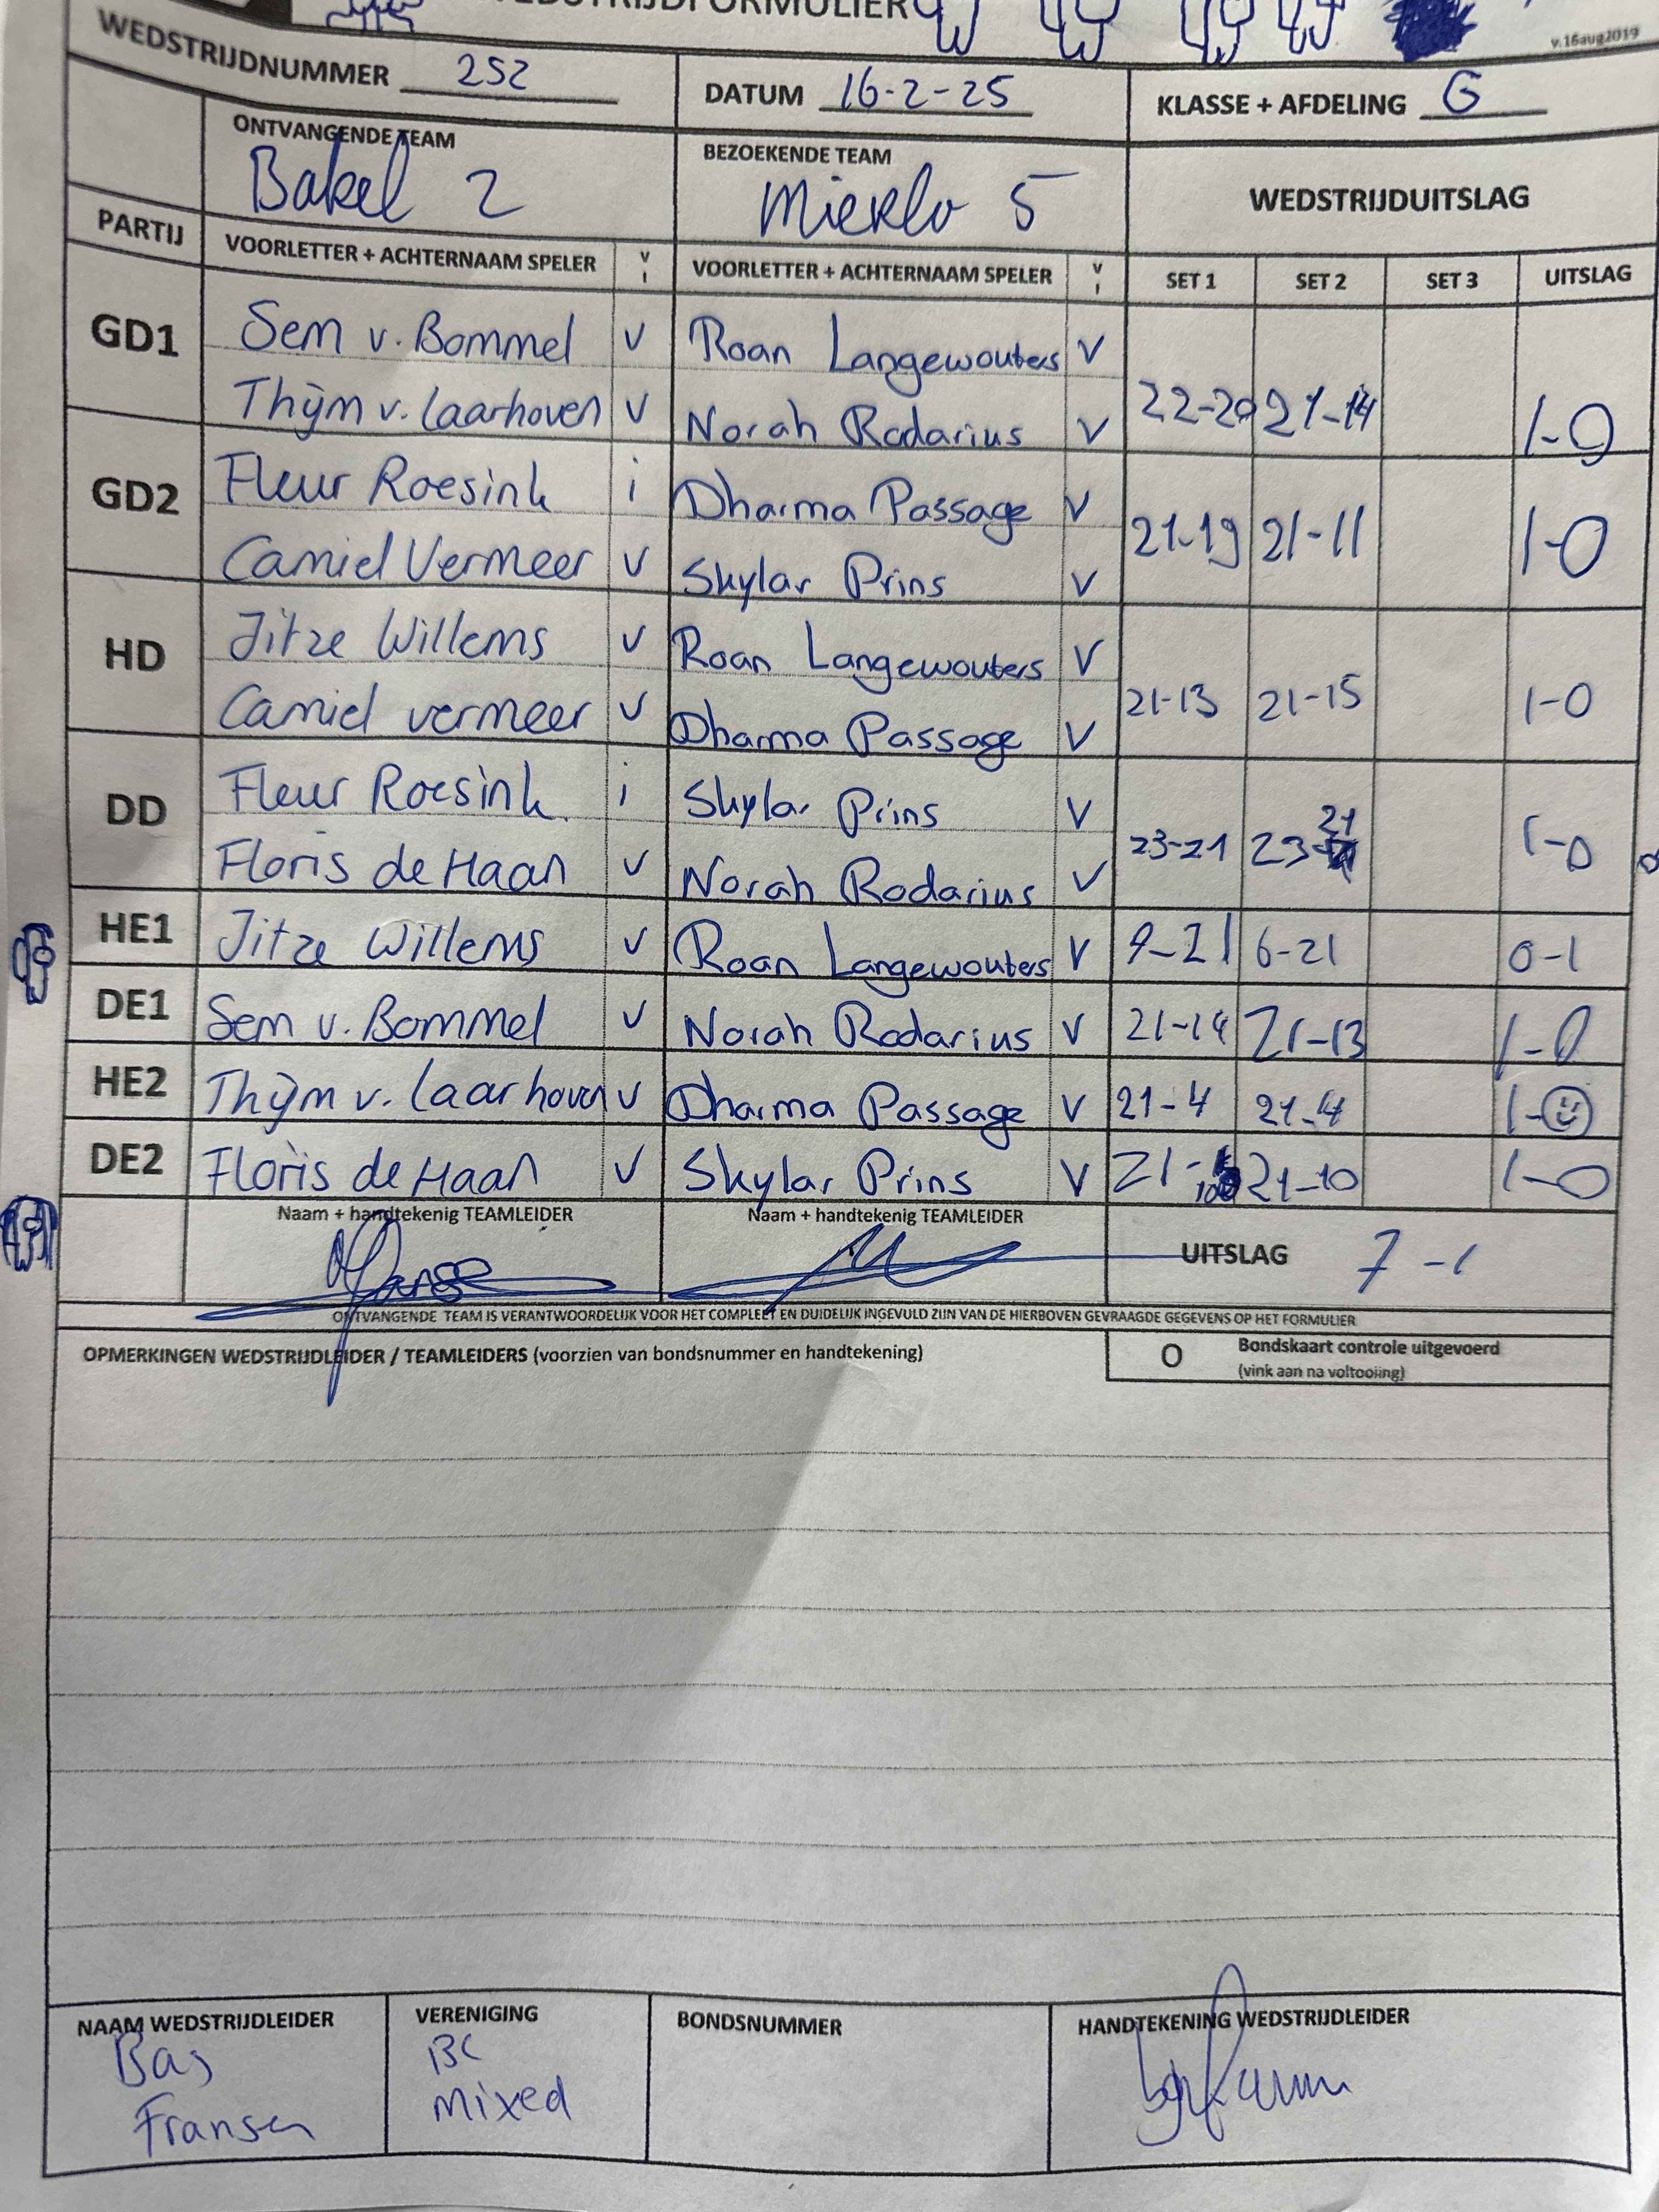 WEDSTRIJDFORMULIER
v.16aug2019
WEDSTRIJDNUMMER 252 DATUM 16-2-25 KLASSE + AFDELING G
ONTVANGENDE TEAM BEZOEKENDE TEAM WEDSTRIJDUITSLAG
Bakel 2 Mierlo 5
PARTIJ VOORLETTER + ACHTERNAAM SPELER V I VOORLETTER + ACHTERNAAM SPELER V I SET 1 SET 2 SET 3 UITSLAG
GD1 Sem v. Bommel V Roan Langewouters V
Thijm v. Laarhoven V Norah Rodarius V 22-20 21-14 1-0
GD2 Fleur Roesink i Dharma Passage V
Camiel Vermeer V Skylar Prins V 21-19 21-11 1-0
HD Jitze Willems V Roan Langewouters V
Camiel vermeer V Dharma Passage V 21-13 21-15 1-0
DD Fleur Roesink i Skylar Prins V
Floris de Haan V Norah Rodarius V 23-21 23-21 1-0
HE1 Jitze Willems V Roan Langewouters V 9-21 6-21 0-1
DE1 Sem v. Bommel V Norah Rodarius V 21-14 21-13 1-0
HE2 Thijm v. Laarhoven V Dharma Passage V 21-4 21-4 1-0
DE2 Floris de Haan V Skylar Prins V 21- 21-10 1-0
Naam + handtekenig TEAMLEIDER Naam + handtekenig TEAMLEIDER
UITSLAG 7-1
ONTVANGENDE TEAM IS VERANTWOORDELIJK VOOR HET COMPLEET EN DUIDELIJK INGEVULD ZIJN VAN DE HIERBOVEN GEVRAAGDE GEGEVENS OP HET FORMULIER
OPMERKINGEN WEDSTRIJDLEIDER / TEAMLEIDERS (voorzien van bondsnummer en handtekening)
O Bondskaart controle uitgevoerd
(vink aan na voltooiing)
NAAM WEDSTRIJDLEIDER VERENIGING BONDSNUMMER HANDTEKENING WEDSTRIJDLEIDER
Bas BC
Fransen Mixed